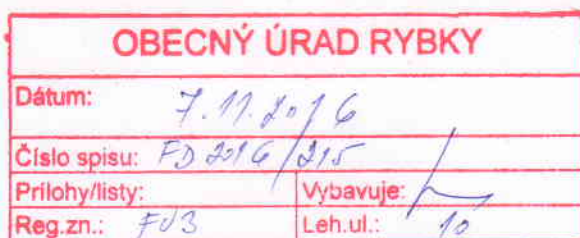 OBECNÝ ÚRAD RYBKY
Dátum: 7.11.2016
Číslo spisu: FD 2016/215
Prílohy/listy: Vybavuje:
Reg.zn.: FD3 Leh.ul.: 10